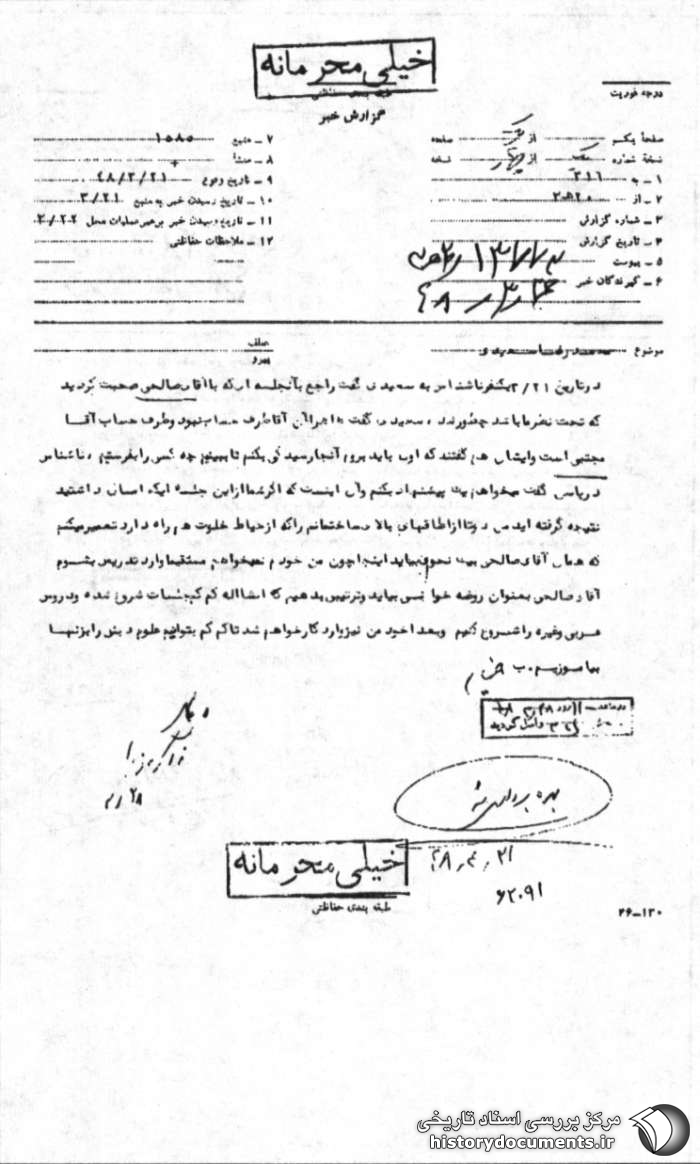 خیلی محرمانه
طبقه بندی حفاظتی
درجه فوریت
گزارش خبر
صفحه یکم از صفحه
نسخه شماره یک از چهار نسخه
۱ ـ به ۳۱۶
۲ ـ از ۲۰ه۲۰
۳ ـ شماره گزارش
۴ ـ تاریخ گزارش
۵ ـ پیوست
۶ ـ گیرندگان خبر
۴۸٫۳٫۲۴
۷ ـ منبع ۱۵۸۵
۸ ـ منشأ +
۹ ـ تاریخ وقوع ۴۸/۳/۲۱
۱۰ ـ تاریخ رسیدن خبر به منبع ۳/۲۱
۱۱ ـ تاریخ رسیدن خبر برهبر عملیات محل ۳/۲۲
۱۲ ـ ملاحظات حفاظتی
موضوع محمدرضا سعیدی
عطف
پیرو
در تاریخ ۳/۲۱ یکنفر ناشناس به سعیدی گفت راجع بآنجلسه ای که با آقای صالحی صحبت کردید
که تحت نظر ما باشد چطور شد، سعیدی گفت ماجرا این آقا طرف حساب نبود و طرف حساب آقا
مجتبی است و ایشان هم گفتند که اول باید بروم آنجا رسیدگی بکنم تا ببینم چه کسی را بفرستم، ناشناس
در پاسخ گفت میخواهم یک پیشنهاد بکنم و آن اینست که اگر شما از این جلسه ایکه آسان داشتید
نتیجه گرفته اید من دوتا از اطاقهای بالا ساختمانم را که از حیاط خلوت هم راه دارد تعمیر میکنم
که همان آقای صالحی بیک نحوی بیاید اینجا چون من خودم نمیخواهم مستقیما وارد تدریس بشوم
آقای صالحی بعنوان روضه خوانی بیاید و ترتیبی بدهیم که انشااله کم کم جلسات شروع شده و دروس
عربی وغیره را شروع کنیم و بعدا خود من نیز وارد کار خواهم شد تا کم کم بتوانیم علوم دینی را بزنها
بیاموزیم. ب
بهره برداری شد
۴۸٫۴٫۲۱
۶۲۰۹۱
خیلی محرمانه
طبقه بندی حفاظتی
۲۶-۱۳۰
مرکز بررسی اسناد تاریخی
historydocuments.ir